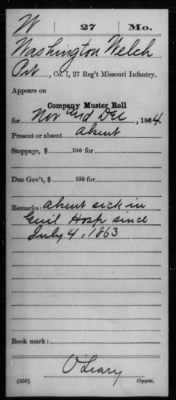 W | 27 | Mo.
Washington Welch
Pvt, Co. I, 27 Reg't Missouri Infantry.
Appears on
Company Muster Roll
for Nov and Dec, 1864.
Present or absent Absent
Stoppage, $ 100 for
Due Gov't, $ 100 for
Remarks: Absent sick in
Genl Hosp since
July 4, 1863
Book mark:
O'Leary
(858) Copyist.